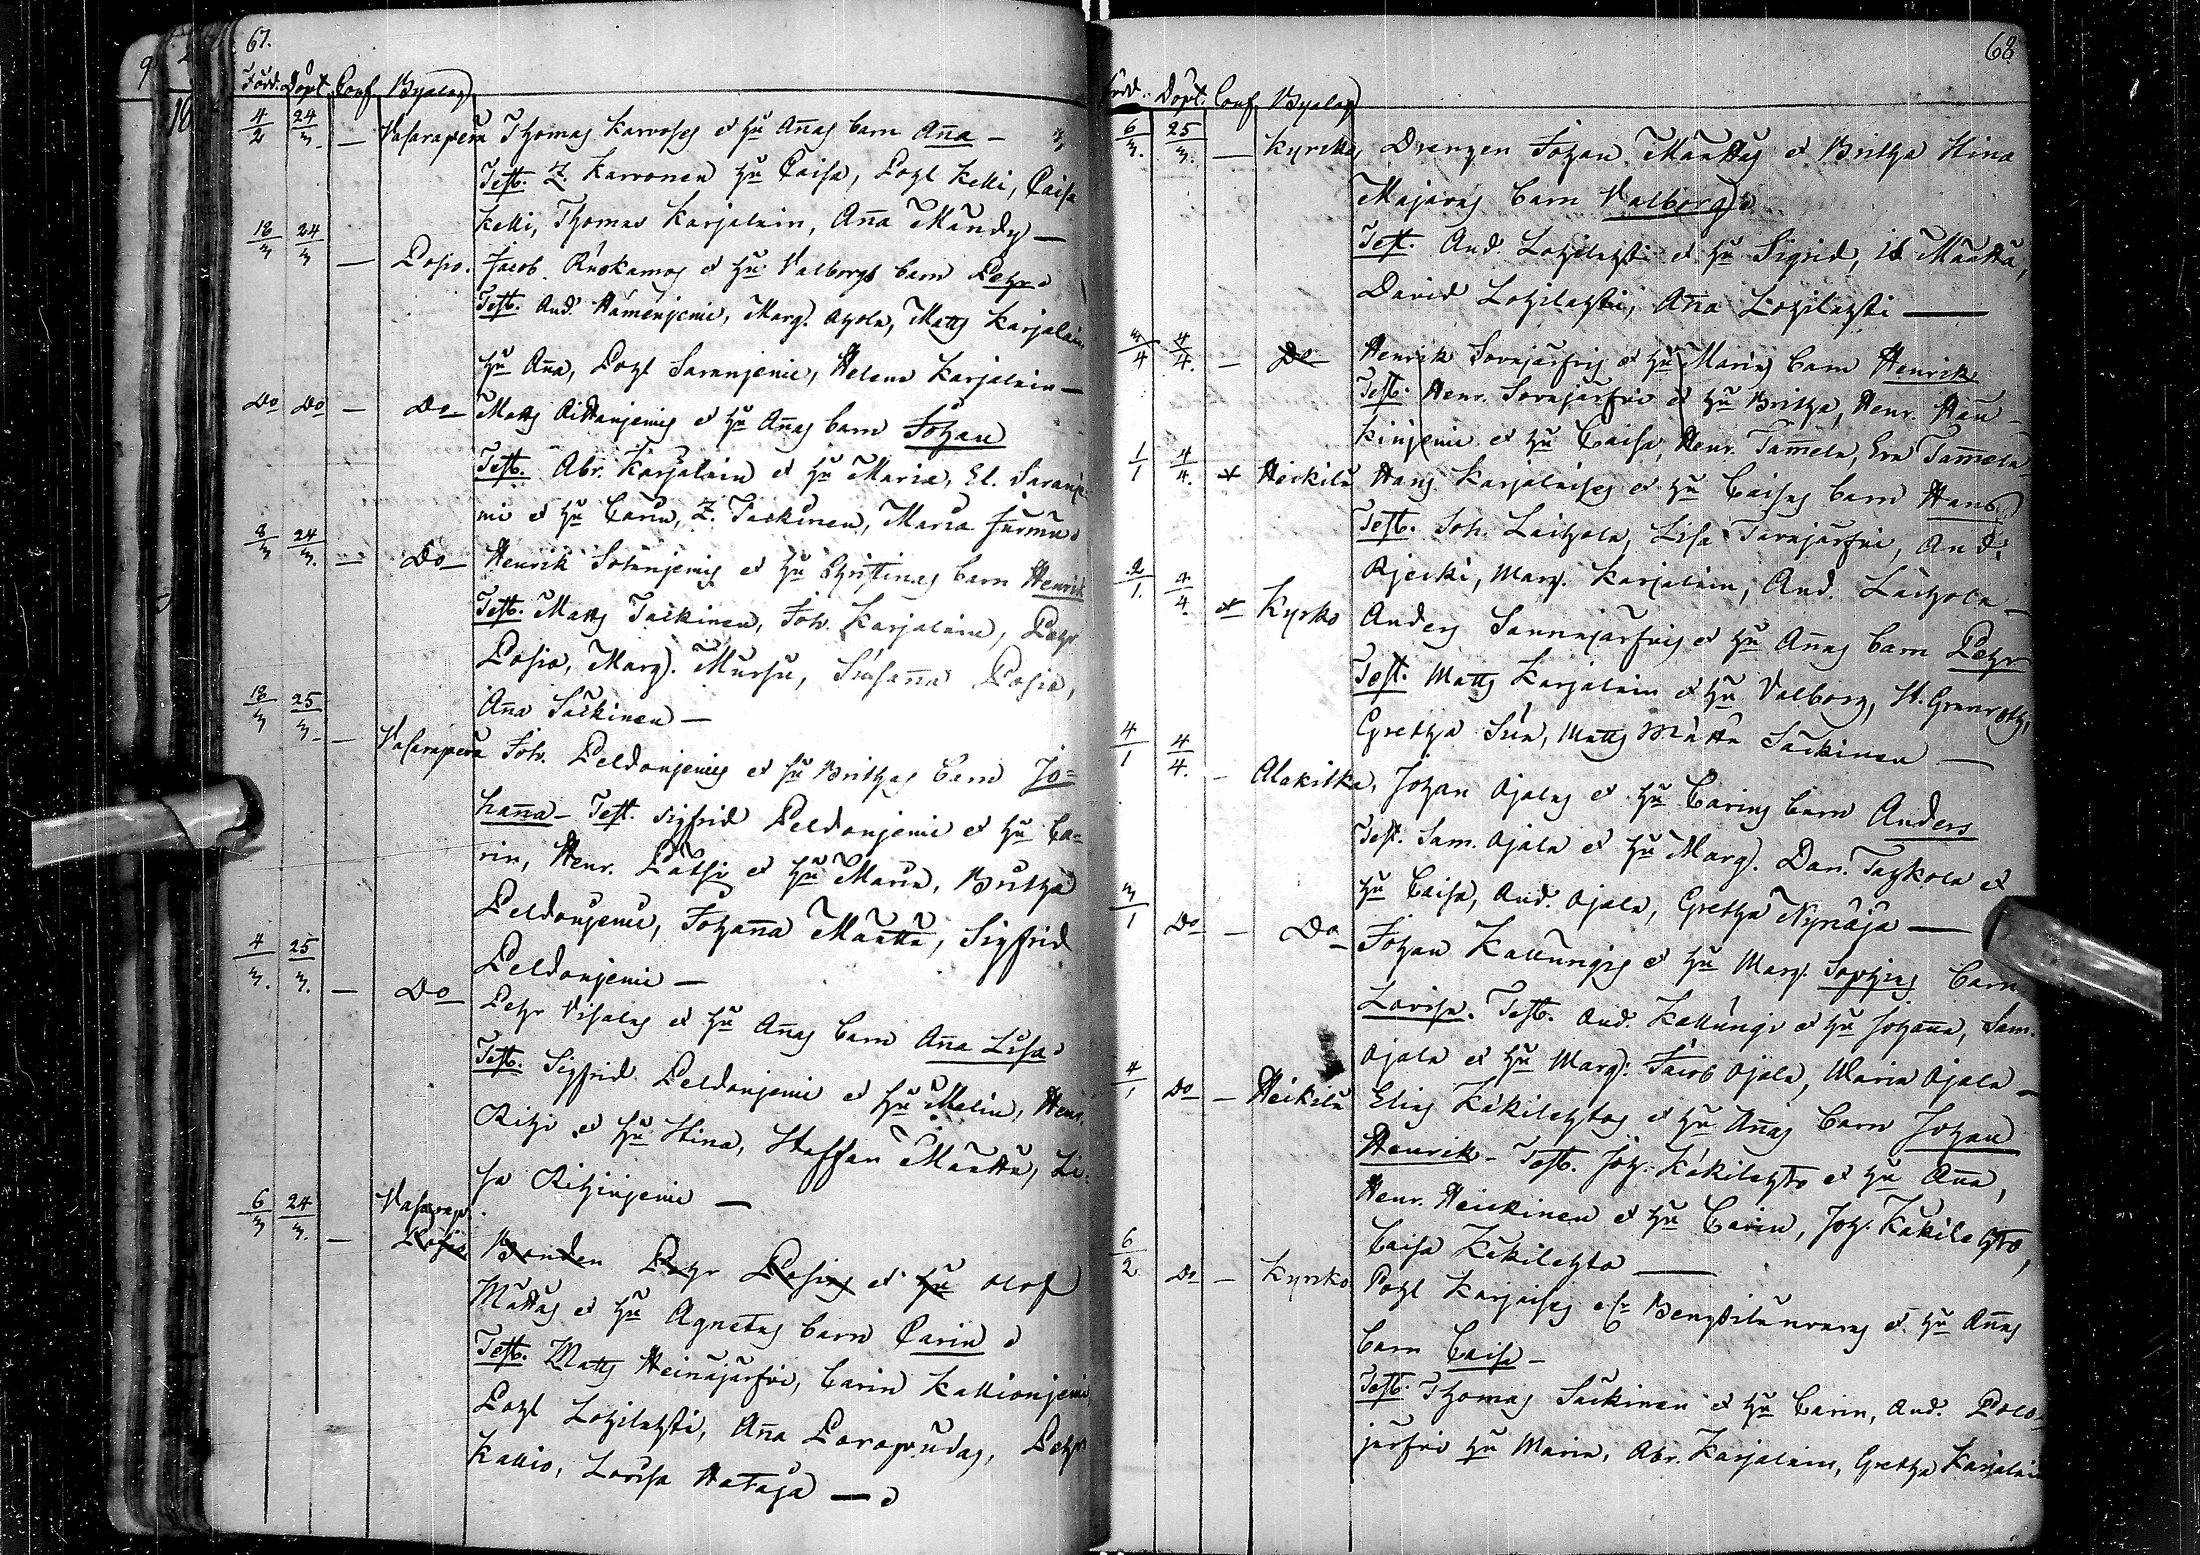 67.
Född. Döpt. Conf Byalag
4/2 24/3. — Vasarapera Thomas Karvoses et hu Annas barn Anna —
Test. Z. Karvonen hu Caisa, Pohl Kelli, Caisa
Kelli, Thomas Karjalain, Anna Mandy —
18/3 24/3 — Posio. Jacob Ruokamos et hu Valborgs barn Pehr
Test. And. Hämenjemi, Marg. Ahola, Matts Karjalain
hu Anna, Pohl Saranjemi, Helena Karjalain —
Do Do — Do Matts Aittanjemis et hu Annas barn Johan
Test. Abr. Karjalain et hu Maria, El. Saranje
mi et hu Carin, Z. Tackinen, Maria Jurmu
8/3 24/3. — Do Henrik Sotanjemis et hu Christinas barn Henrik
Test. Matts Säckinen, Joh. Karjalain, Pehr
Posio, Marg. Mursu, Susanna Posio,
Anna Säckinen —
18/3 25/3. — Vasarapera Joh. Peldonjemis et hu Brithas barn Jo=
hanna — Test. Sigfrid Peldonjemi et hu Ca=
rin, Henr. Pätsi et hu Maria, Britha
Peldonjemi, Johanna Määttä, Sigfrid
Peldonjemi —
4/3. 25/3. — Do Pehr Visalas et hu Annas barn Anna Lisa
Test. Sigfrid Peldonjemi et hu Malin, Henr.
Rihi et hu Stina, Staffan Määttä, Li=
sa Rihinjemi —
6/3 24/3. — Vasarap.
Posio Bonden Pehr Posios et hu Olof
Mättas et hu Agnetas barn Carin
Test. Matts Heinäjärfvi, Carin Kallionjemi
Pohl Lohilahti, Anna Parapudas, Pehr
Kallio, Lovisa Hataja —
68
Född. Döpt. Conf Byalag
6/3. 25/3. — Kyrko Drengen Johan Määttas et Britha Stina
Majavas barn Valborg
Test. And. Lohilahti et hu Sigrid, Is. Määttä,
David Lohilahti, Anna Lohilahti —
3/4 4/4. — Do Henrik Sovajärfvis et hu Marias barn Henrik
Test. Henr. Sovajärfvi et hu Britha, Henr. Hau=
kinjemi et hu Caisa, Henr. Tammela, Eva Tammela
1/1 4/4. + Heikilä Hans Karjalaises et hu Caisas barn Hans
Test. Joh. Laihola, Lisa Tavajärfvi, And.
Ojecki, Marg. Karjalain, And. Laihola —
2/1. 4/4. + Kyrko Anders Saunajärfvis et hu Annas barn Pehr
Test. Matts Karjalain et hu Valborg, St. Granroth,
Gretha Sua, Matts Mätta Säckinen —
4/1 4/4. — Alakitka, Johan Ojalas et hu Carins barn Anders
Test. Sam. Ojala et hu Marg. Dan. Tahkola et
hu Caisa, And. Ojala, Gretha Nynäja —
3/1 Do — Do Johan Kallungis et hu Marg. Sophias barn
Lovisa. Test. And. Kallungi et hu Johanna, Sam.
Ojala et hu Marg. Jacob Ojala, Maria Ojala —
4/1 Do — Heikilä Elias Käkilehtos et hu Annas barn Johan
Henrik — Test. Joh. Käkilehto et hu Anna,
Henr. Heickinen et hu Carin, Joh. Käkilehto,
Caisa Käkilehto —
6/2. Do — Kyrko Pohl Karjaises et hu Annas
barn Caisa —
Test. Thomas Säckinen et hu Carin, And. Polo=
järfvi hu Maria, Abr. Karjalain, Gretha Karjalain